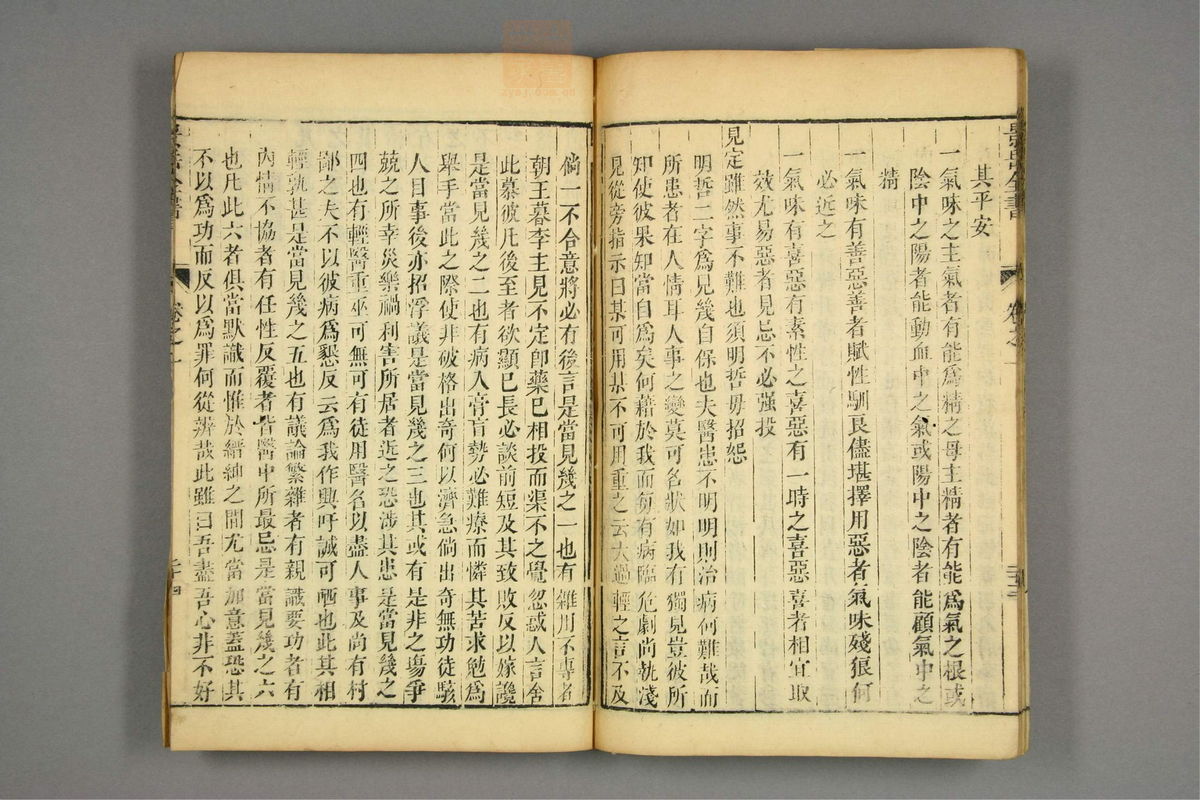 其平安
一氣味之主氣者有能爲精之母主精者有能爲氣之根或
陰中之陽者能動血中之氣或陽中之陰者能顧氣中之
精
一氣味有善惡善者賦性馴良儘堪擇用惡者氣味殘狠何
必近之
一氣味有喜惡有素性之喜惡有一時之喜惡喜者相宜取
效尤易惡者見忌不必强投
見定雖然事不難也須明哲毋招怨
明哲二字爲見幾自保也夫醫患不明明則治病何難哉而
所患者在人情耳人事之變莫可名狀如我有獨見豈彼所
知使彼果知當自爲矣何藉於我而每有病臨危劇尚執淺
見從旁指示曰某可用某不可用重之云大過輕之言不及
倘一不合意將必有後言是當見幾之一也有雜用不專者
朝王暮李主見不定卽藥已相投而渠不之覺忽惑人言舍
此慕彼凡後至者欲顯已長必談前短及其致敗反以嫁讒
是當見幾之二也有病入膏肓勢必難療而憐其苦求勉爲
舉手當此之際使非破格出奇何以濟急倘出奇無功徒駭
人目事後亦招浮議是當見幾之三也其或有是非之塲爭
兢之所幸災樂禍利害所居者近之恐涉其患是當見幾之
四也有輕醫重巫可無可有徒用醫名以盡人事及尚有村
鄙之夫不以彼病爲懇反云爲我作興吁誠可哂也此其相
輕孰甚是當見幾之五也有議論繁雜者有親識要功者有
內情不協者有任性反覆者皆醫中所最忌是當見幾之六
也凡此六者俱當默識而惟於縉紳之間尤當加意蓋恐其
不以爲功而反以爲罪何從辨哉此雖曰吾盡吾心非不好
景岳全書
卷之一
二十四
景岳全書
卷之一